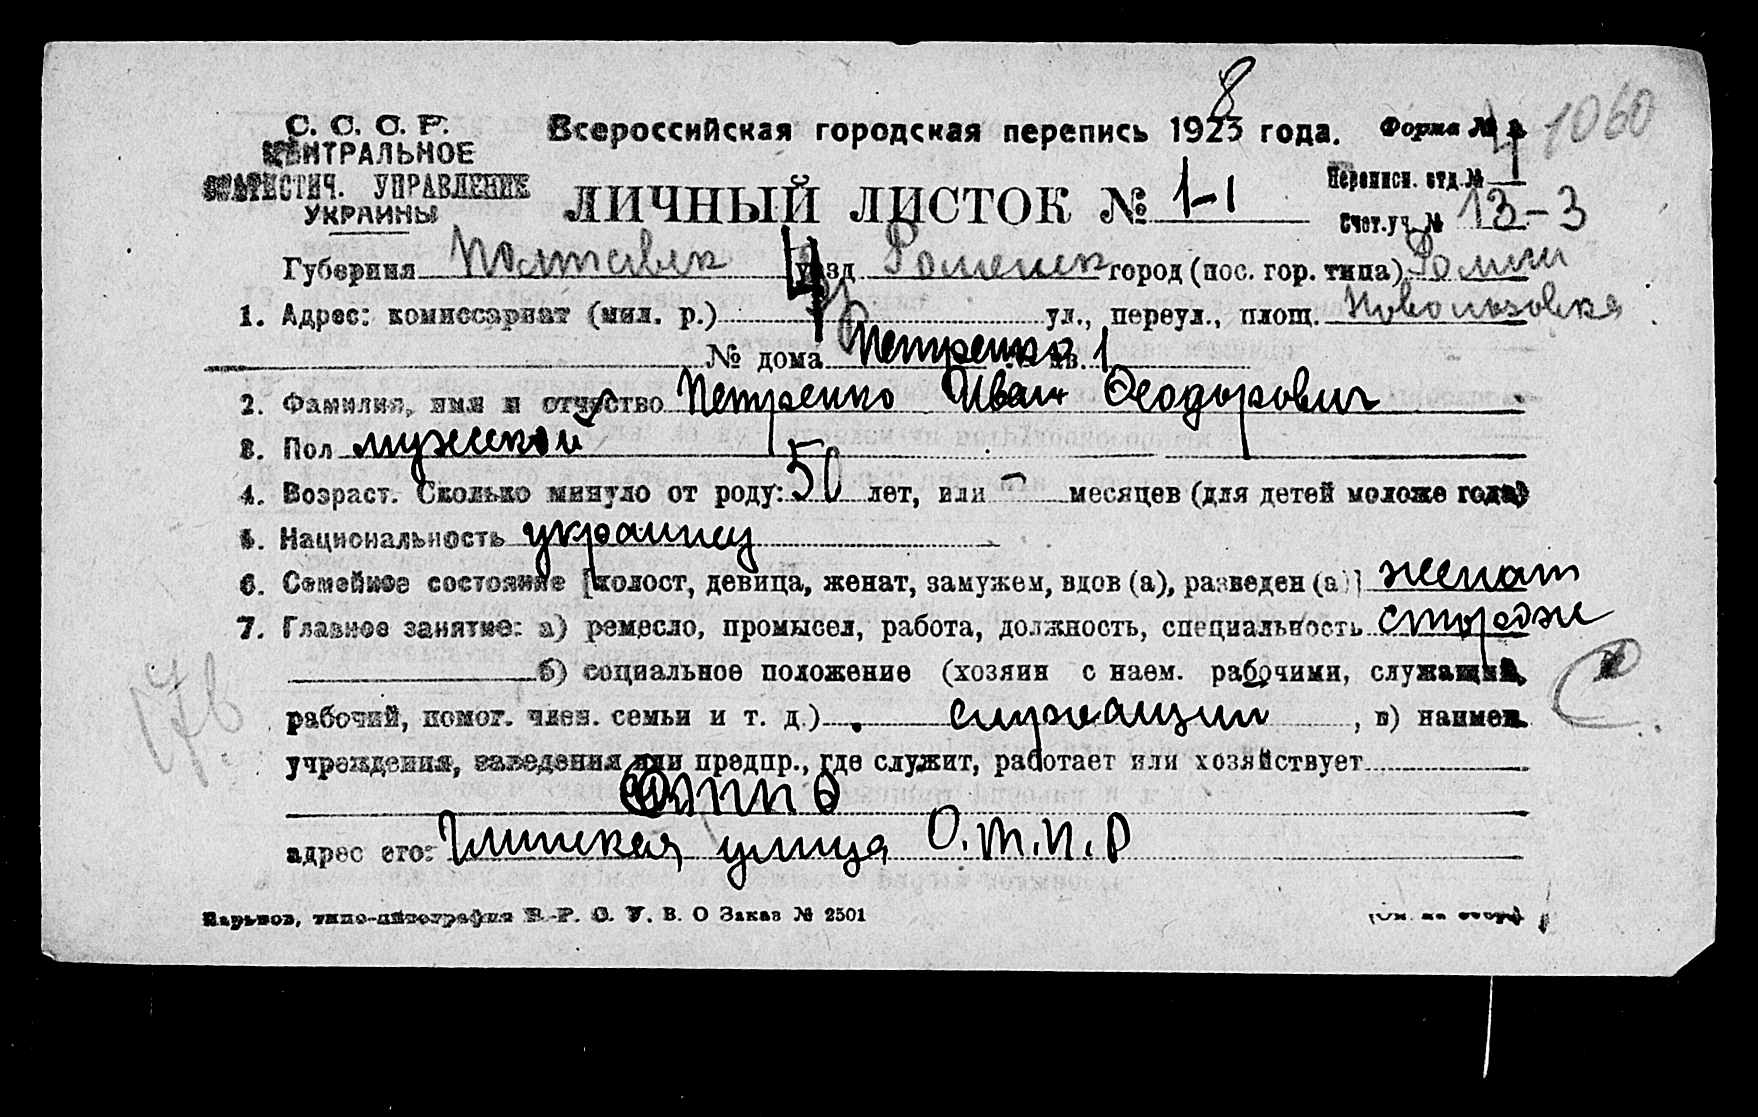 С. С. С. Р. Всероссийская городская перепись 1923 года. 8 Форма № 4 1060
ЦЕНТРАЛЬНОЕ
СТАТИСТИЧ. УПРАВЛЕНИЕ Переписн. отд. № 1
УКРАИНЫ ЛИЧНЫЙ ЛИСТОК № 1-1 Счет. уч. № 13-3
Губерния Полтавск уезд Роменск город (пос. гор. типа) Ромни
1. Адрес: комиссариат (мил. р.) ул., переул., площ.
№ дома Петренко кв. 1
2. Фамилия, имя и отчество Петренко Иван Феодорович
3. Пол мужской
4. Возраст. Сколько минуло от роду: 50 лет, или – месяцев (для детей моложе года)
5. Национальность украинец
6. Семейное состояние [холост, девица, женат, замужем, вдов (а), разведен (а)] женат
7. Главное занятие: а) ремесло, промысел, работа, должность, специальность сторож
б) социальное положение (хозяин с наем. рабочими, служащий,
рабочий, помог. член. семьи и т. д.) служащий, в) наимен.
учреждения, заведения или предпр., где служит, работает или хозяйствует
адрес его: Глинская улица О.Т.П.Р
Харьков, типо-литография В. О Заказ № 2501 (См. на обор.)
17в